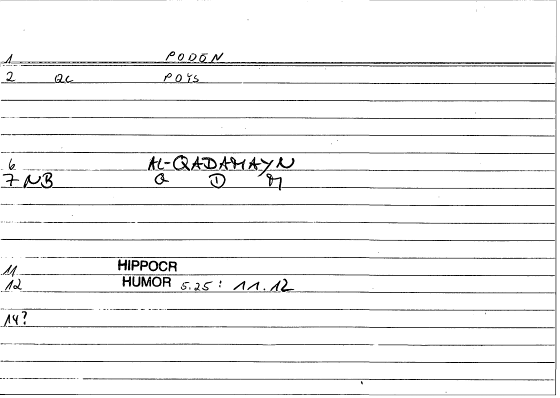 1 PODON
2 QC POYS
6 AL-QADAMAYN
7 NB Q D M
11 HIPPOCR
12 HUMOR 5.25: 11.12
14?